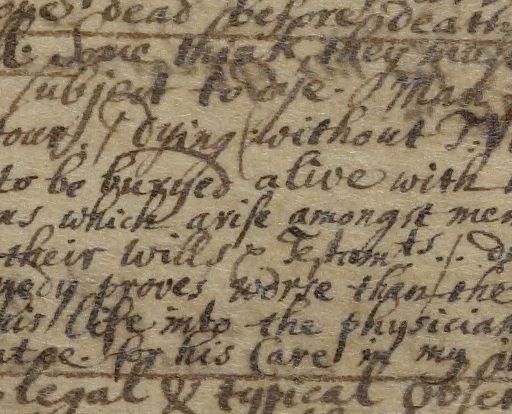 dead before death
think they may
subject to dye. Man
dying without
to be buryed alive with
as which arise amongst men
their wills & Testamts. /
proves worse than the
his life into the physician
for his Care in my
legal & typical